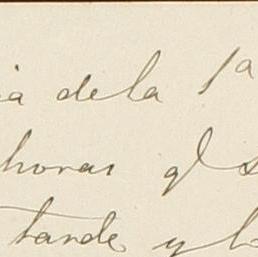 ia de la 1ª
horas
tarde y